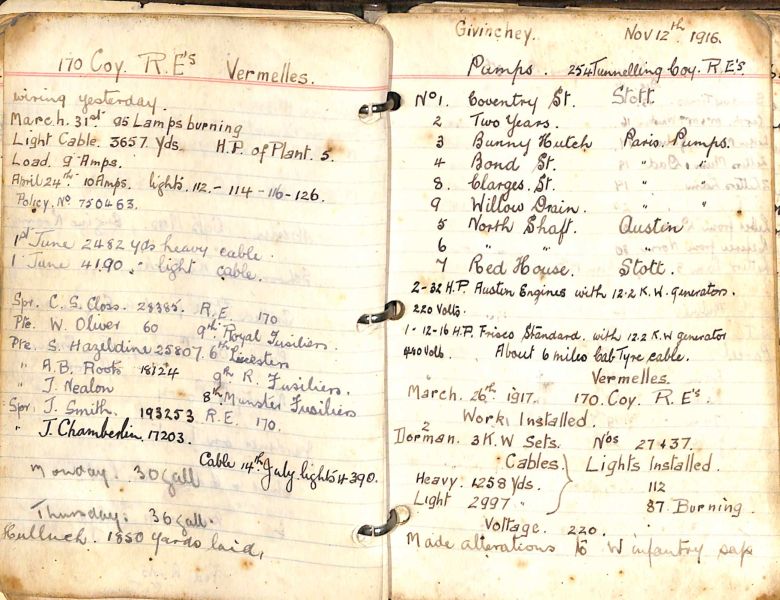 170 Coy. R.E's Vermelles.
wiring yesterday.
March. 31st 95 Lamps burning
Light Cable. 3657 yds. H.P. of Plant. 5.
Load. 9 Amps.
April 24th 10 Amps. lights. 112. - 114 - 116 - 126.
Policy. No 750463.
1st June 2482 yds heavy cable.
1 June 4190 " light cable.
Spr. C. S. Closs. 28385. R.E. 170
Pte. W. Oliver 60 9th Royal Fusiliers.
Pte. S. Hazeldine 25807. 6th Leicesters
" A.B. Roots 18124 9th R. Fusiliers.
" J. Nealon 8th Munster Fusiliers
Spr. J. Smith. 193253 R.E. 170.
" J. Chamberlin. 17203.
Cable 14th July lights 4390.
Monday. 30 gall
Thursday: 36 gall.
Hulluch. 1850 yards laid,
Givinchey. Nov 12th 1916.
Pumps. 254 Tunnelling Coy. R.E's.
No 1. Coventry St. Stott.
2 Two Years.
3 Bunny Hutch Paris Pumps.
4 Bond St. " "
8. Clarges. St. " "
9 Willow Drain. " "
5 North Shaft. Austin
6 " "
7 Red House. Stott.
2-32 H.P. Austin Engines with 12.2 K.W. generators.
220 Volts.
1-12-16 H.P. Frisco Standard. with 12.2 K.W generator
440 Volts. About 6 miles Cab Tyre cable.
Vermelles.
March. 26th 1917. 170. Coy. R. E's.
Work Installed.
2
Dorman. 3 K.W Sets. Nos 27 & 37.
Cables. Lights Installed.
Heavy. 1258 Yds. 112
Light 2997 " 87 Burning.
Voltage. 220.
Made alterations to W infantry sap